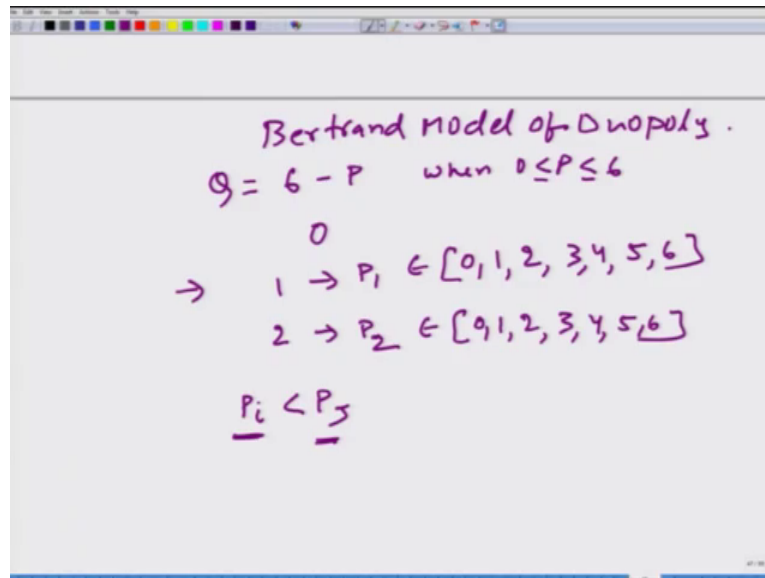 Bertrand Model of Duopoly.
Q = 6 - P when 0 ≤ P ≤ 6
0
→ 1 → P₁ ∈ [0, 1, 2, 3, 4, 5, 6]
2 → P₂ ∈ [0, 1, 2, 3, 4, 5, 6]
Pᵢ < PJ